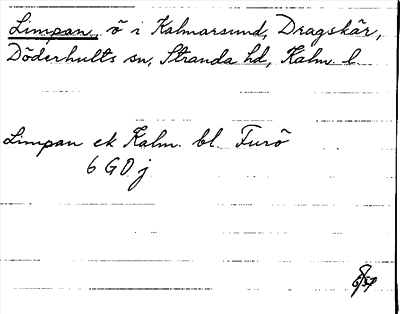 Limpan, ö i Kalmarsund, Dragskär,
Döderhults sn, Stranda hd, Kalm. l.
Limpan ek Kalm. bl. Furö
6 G 0 j